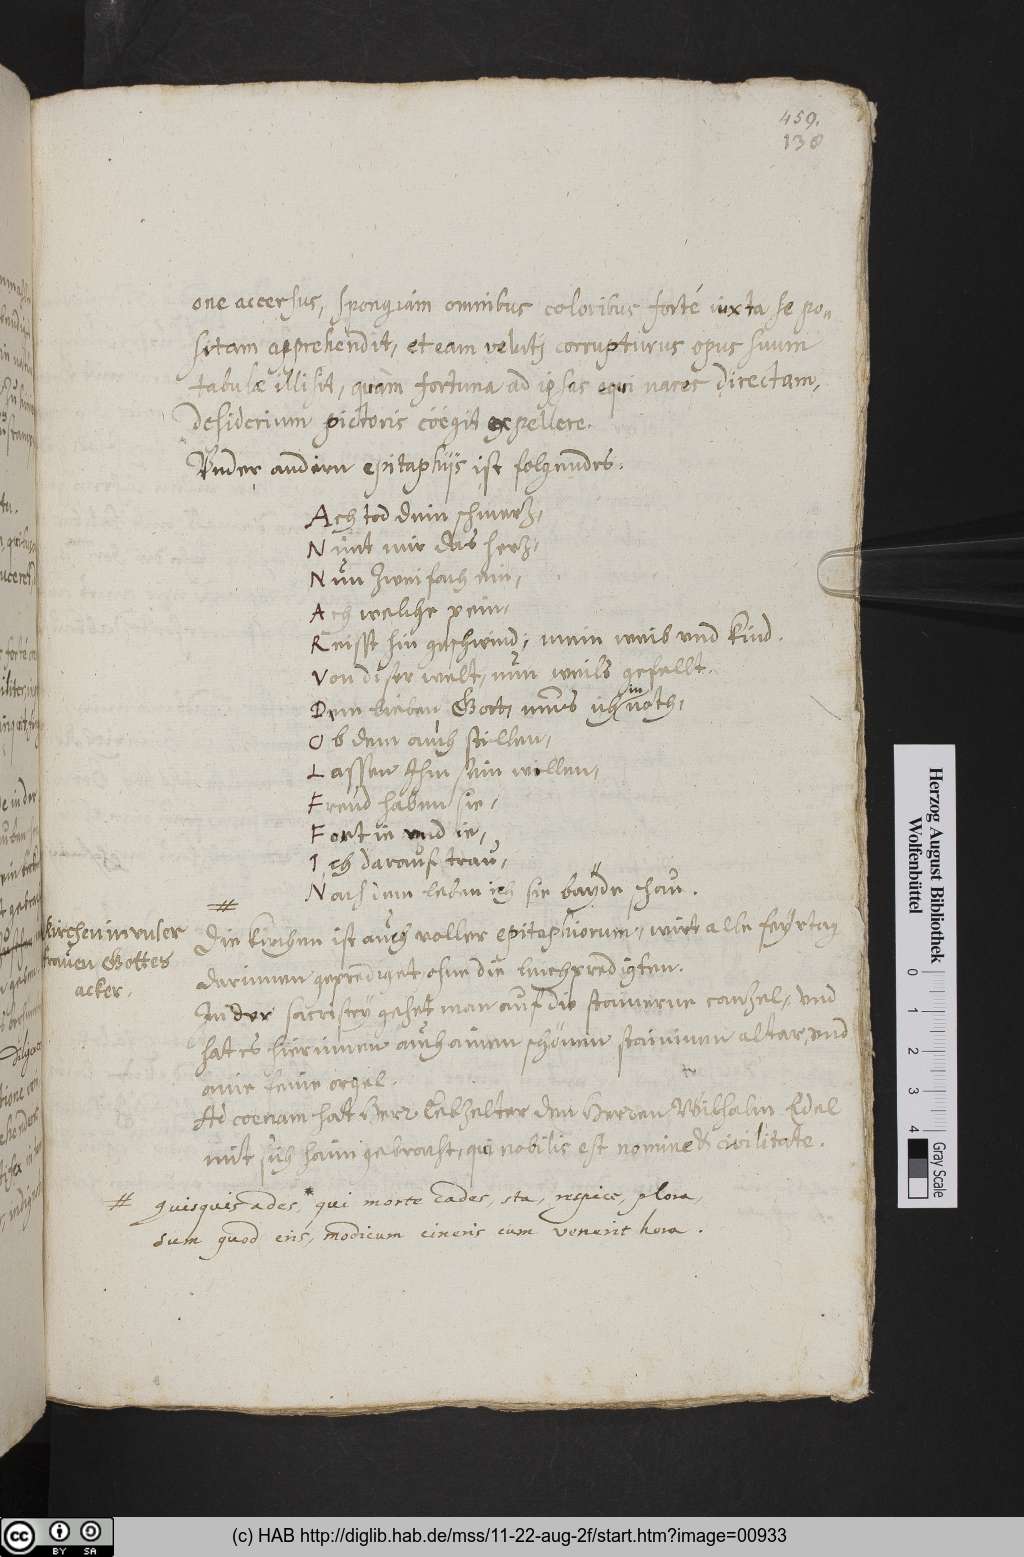 459.
138
one accersus, spongiam omnibus coloribus forté iuxta se po„
sitam apprehendit, et eam veluti corrupturus opus suum
tabulæ illisit, quàm fortuna ad ipsas equi nares directam,
desiderium pictoris cöégit expellere.
Vnder andern epitaphijs ist folgendes.
Ach tod dein schmertz,
Nimt mir das hertz,
Nun zweifach ein,
Ach welche pein,
Reisst hin geschwind, mein weib vnd kind.
Von diser welt, nun weils gefellt.
Dem lieben Gott, mus ich in noth,
Ob dem auch stillen,
Lassen Ihm sein willen,
Freud haben sie,
Fort ie vnd ie,
Ich darauf trau,
Nach dem leben ich sie bayde schau.
#
Kirchen in vnser
frauen Gottes
acker.
Die kirchen ist auch voller epitaphiorum, wirt alle feyrtag
darinnen geprediget, ohne die leichpredigten.
In der sacristey gehet man auf die stainerne canzel, vnd
hat es hierinnen auch ainen schönen staininen altar, vnd
aine feine orgel.
Ad coenam hat Herr Lebzelter den Herren Wilhalm Edel
mit sich haim gebracht, qui nobilis est nomine & civilitate.
# quisquis ades, qui morte cades, sta, respice, plora,
sum quod eris, modicum cineris cum venerit hora.
Herzog August Bibliothek
Wolfenbüttel
0 1 2 3 4
Gray Scale
cc BY SA
(c) HAB http://diglib.hab.de/mss/11-22-aug-2f/start.htm?image=00933